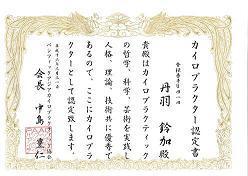 カイロプラクター認定書
丹羽 鈴加殿
貴殿はカイロプラクティック
の哲学、科学、芸術を実践し
人格、理論、技術共に優秀で
あるので、ここにカイロプラ
クターとして認定致します。
会長 中島